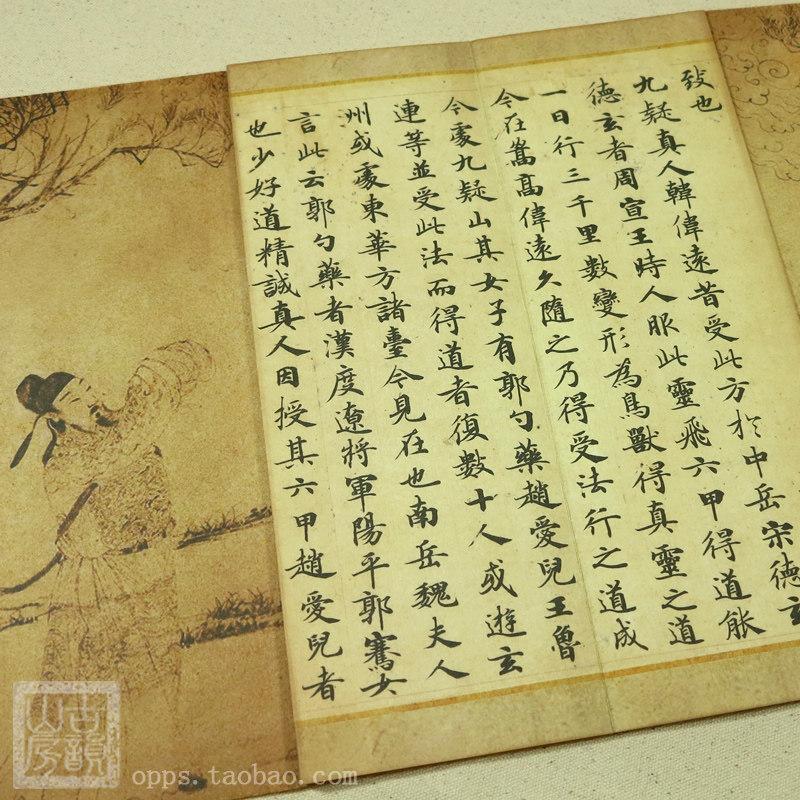 致也
九疑真人韓偉遠昔受此方於中岳宋德玄
德玄者周宣王時人服此靈飛六甲得道能
一日行三千里數變形為鳥獸得真靈之道
今在嵩高偉遠久隨之乃得受法行之道成
今處九疑山其女子有郭勺藥趙愛兒王魯
連等並受此法而得道者復數十人或遊玄
州或處東華方諸臺今見在也南岳魏夫人
言此云郭勺藥者漢度遼將軍陽平郭騫女
也少好道精誠真人因授其六甲趙愛兒者
古韻山房
opps.taobao.com